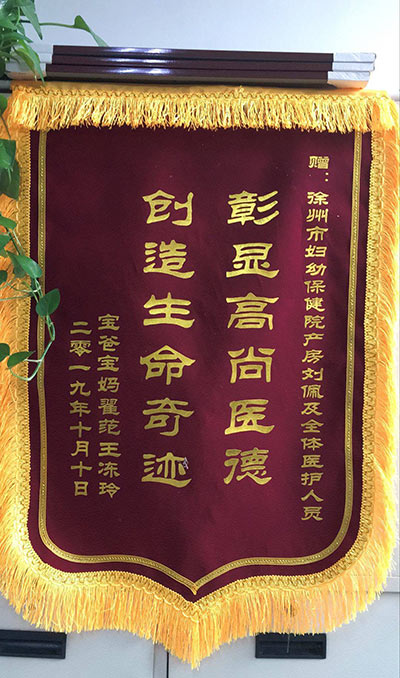 赠：徐州市妇幼保健院产房刘佩及全体医护人员
彰显高尚医德
创造生命奇迹
宝爸宝妈翟范王冻玲
二零一九年十月十日